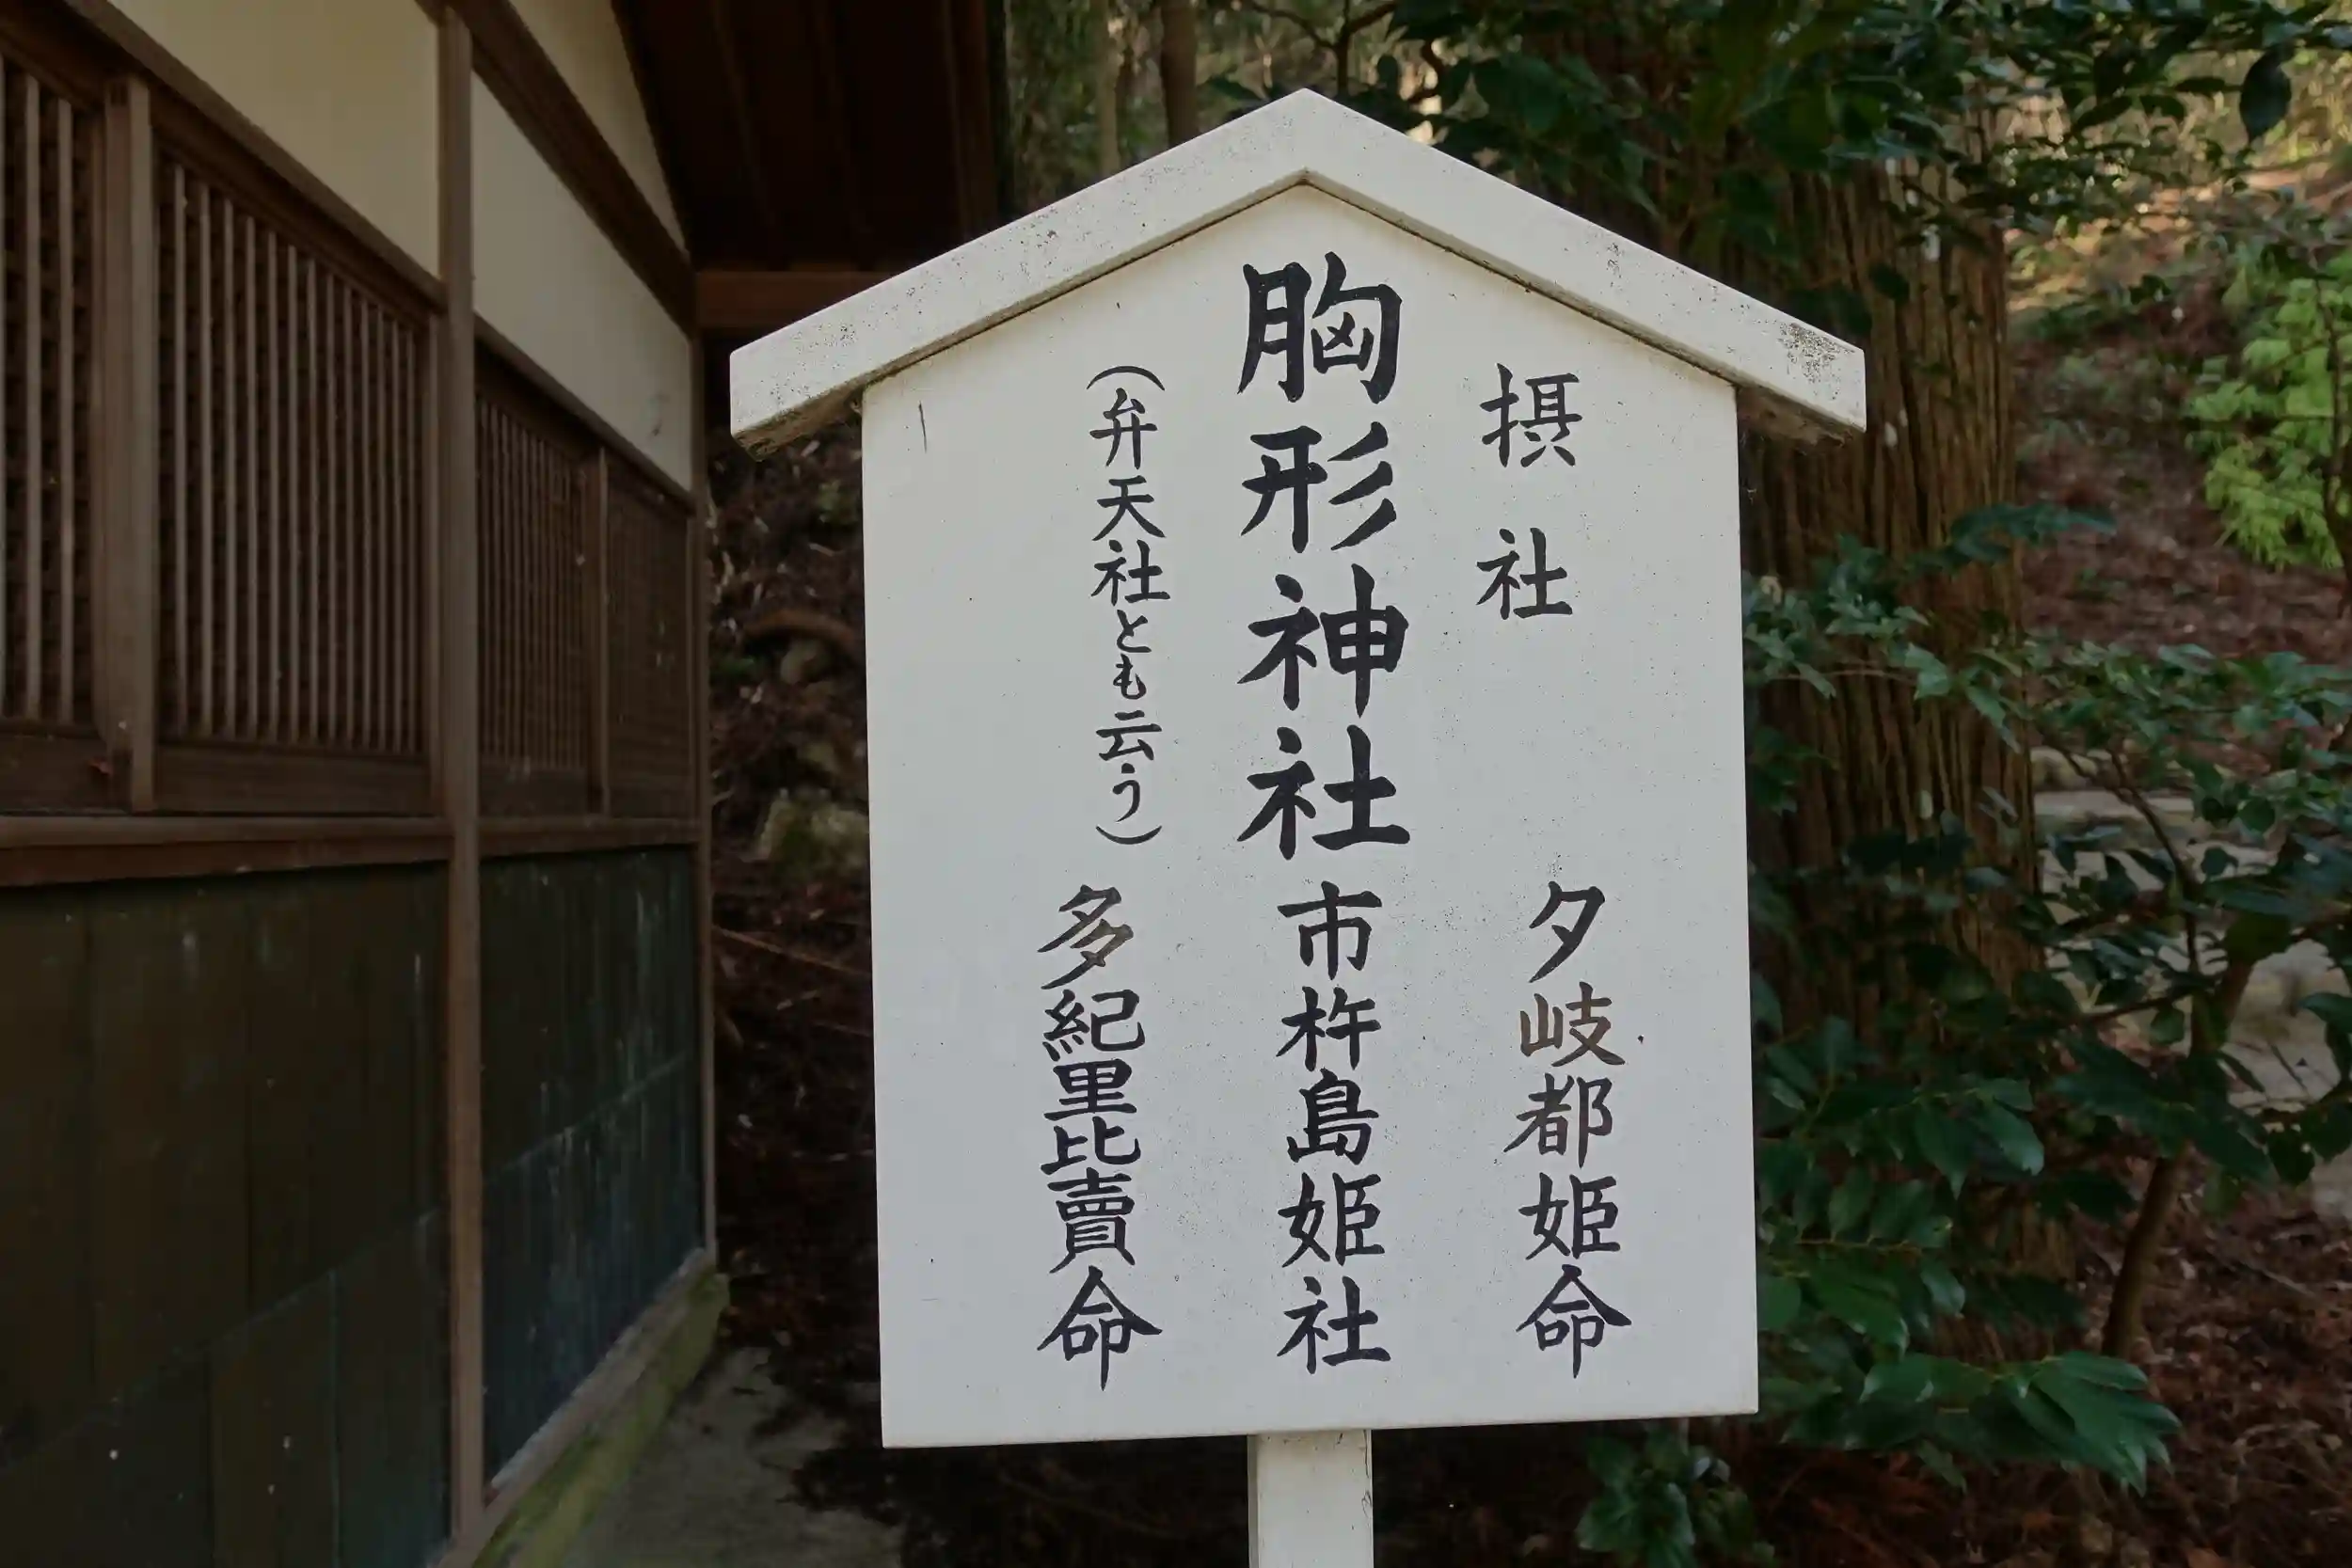 摂社
夕岐都姫命
胸形神社
市杵島姫社
（弁天社とも云う）
多紀里比賣命